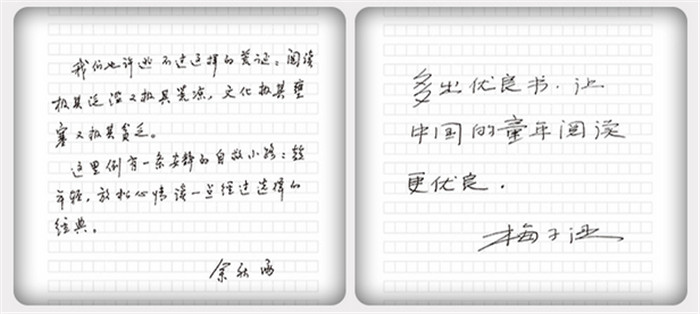 我们也许逃不过这样的荒诞。阅读
极其泛滥又极其荒凉，文化极其壅
塞又极其贫乏。
这里倒有一条安静的自救小路：趁
年轻，放松心情读一点经过选择的
经典。
余秋雨
多出优良书，让
中国的童年阅读
更优良.
梅子涵